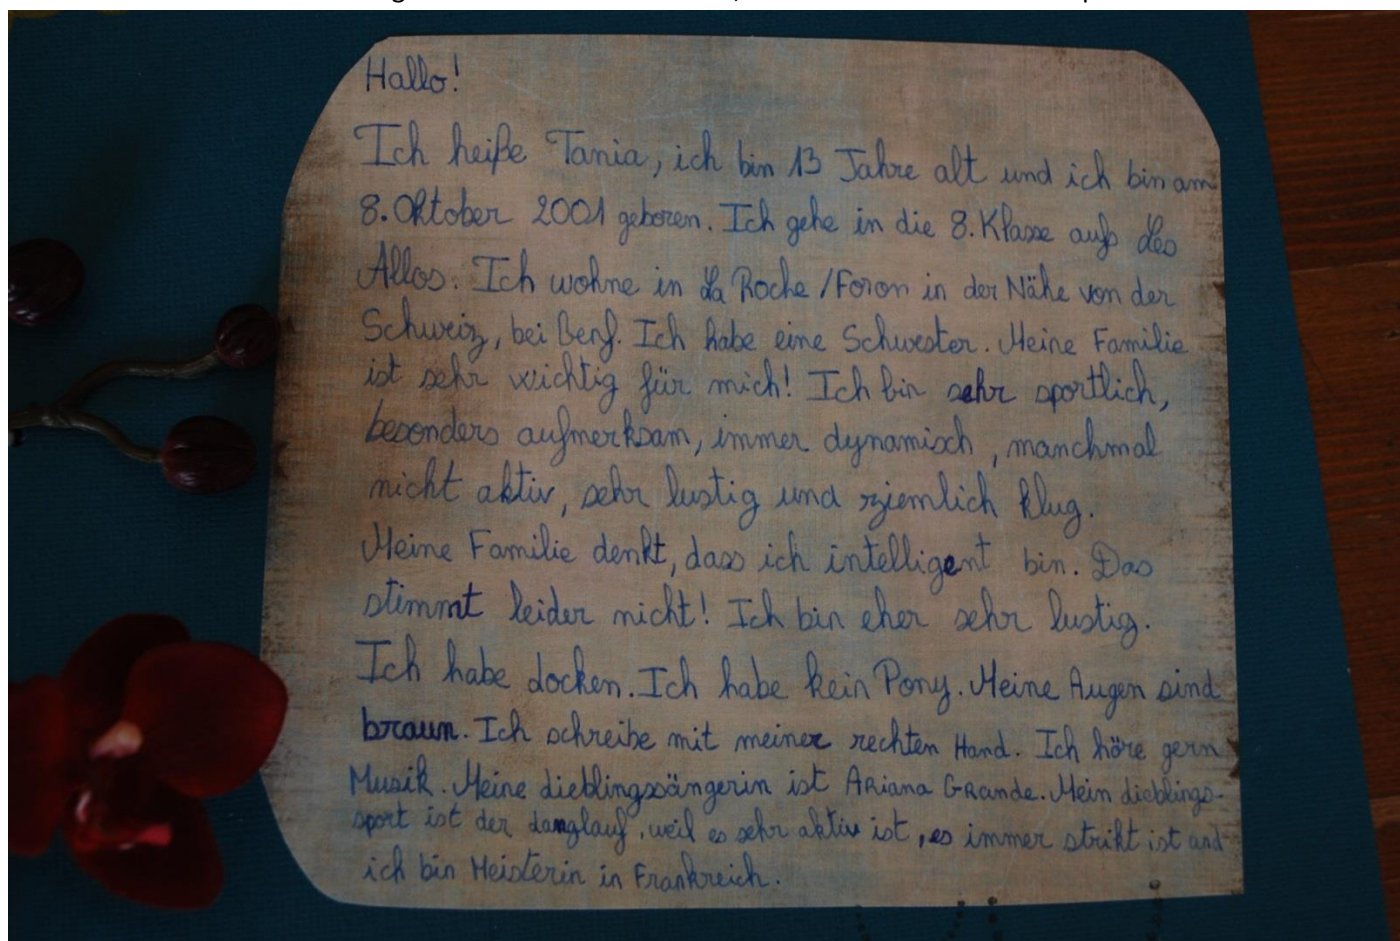 Hallo!
Ich heiße Tania, ich bin 13 Jahre alt und ich bin am
8. Oktober 2001 geboren. Ich gehe in die 8. Klasse aufs Les
Allos. Ich wohne in La Roche /Foron in der Nähe von der
Schweiz, bei Genf. Ich habe eine Schwester. Meine Familie
ist sehr wichtig für mich! Ich bin sehr sportlich,
besonders aufmerksam, immer dynamisch, manchmal
nicht aktiv, sehr lustig und ziemlich klug.
Meine Familie denkt, dass ich intelligent bin. Das
stimmt leider nicht! Ich bin eher sehr lustig.
Ich habe Locken. Ich habe kein Pony. Meine Augen sind
braun. Ich schreibe mit meiner rechten Hand. Ich höre gern
Musik. Meine Lieblingssängerin ist Ariana Grande. Mein Lieblings-
sport ist der Langlauf, weil es sehr aktiv ist, es immer strikt ist und
ich bin Meisterin in Frankreich.